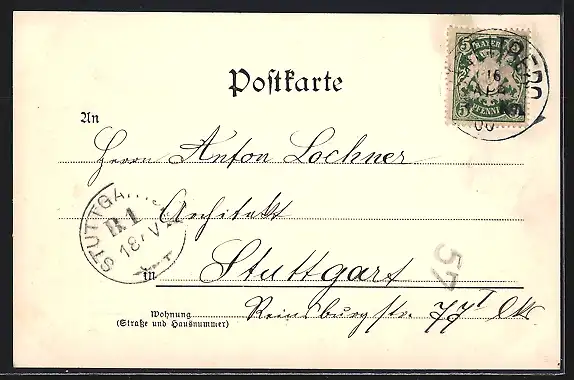 BAYERN
5 5
16
PFENNIG
00
Postkarte
An
Herrn Anton Lochner
Architekt
STUTTGART
B 1
18 V
in Stuttgart
57
Wohnung Reinsburgstr. 77
(Straße und Hausnummer)